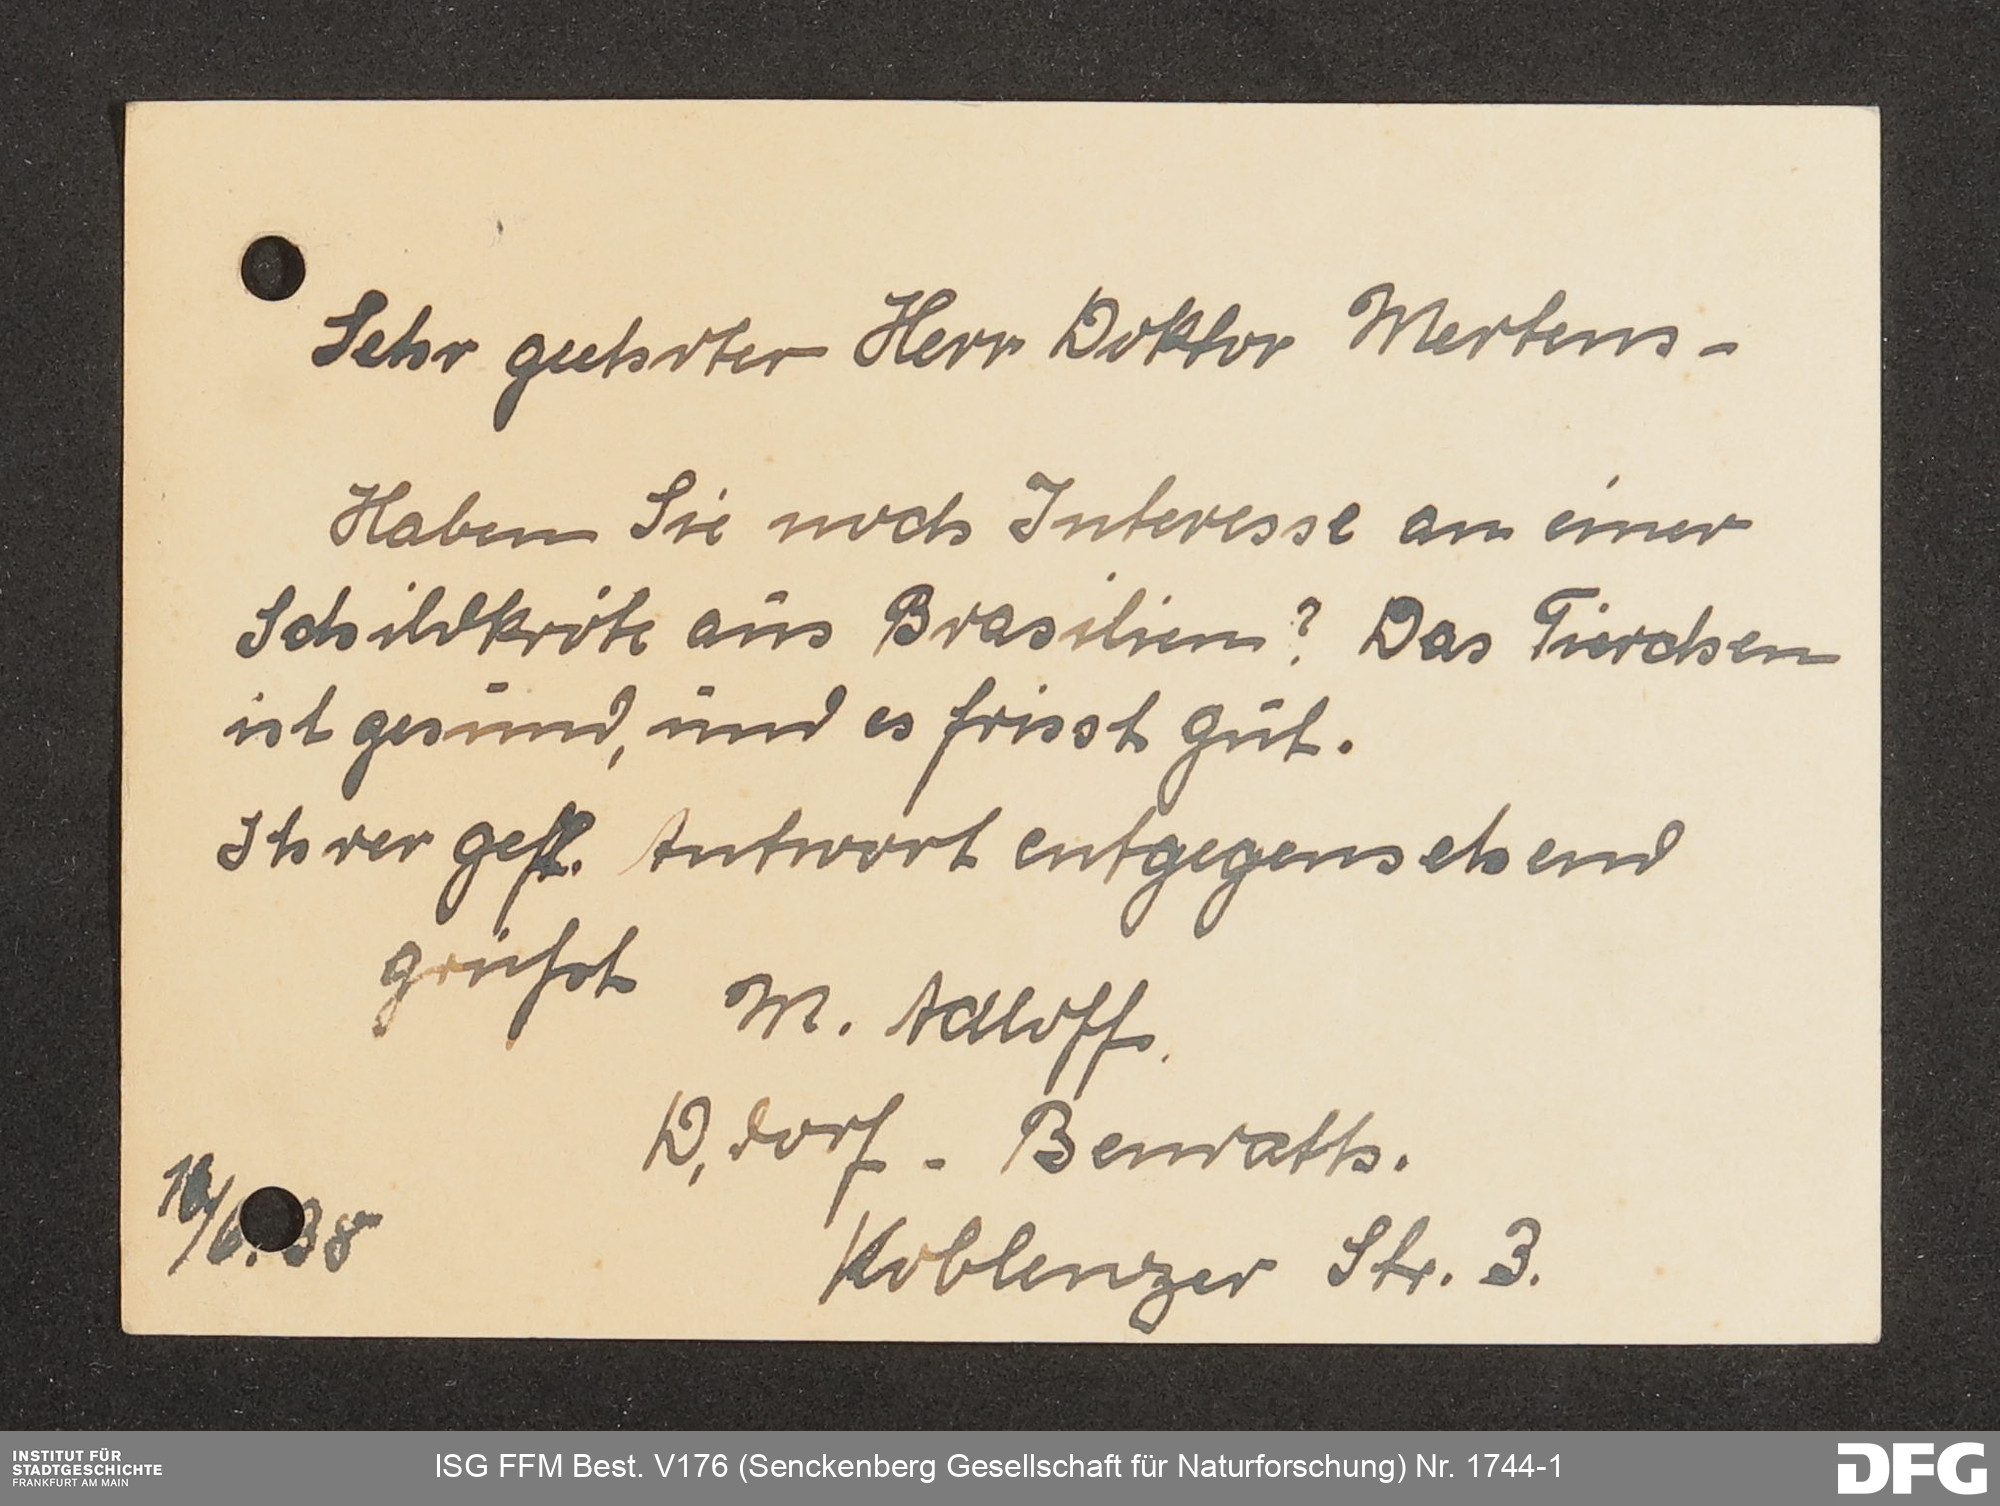 Sehr geehrter Herr Doktor Mertens -
Haben Sie noch Interesse an einer
Schildkröte aus Brasilien? Das Tierchen
ist gesund, und es frisst gut.
Ihrer gefl. Antwort entgegensehend
grüßt
M. Adloff.
D,dorf - Benrath.
Koblenzer Str. 3.
/6. 38
INSTITUT FÜR
STADTGESCHICHTE
FRANKFURT AM MAIN
ISG FFM Best. V176 (Senckenberg Gesellschaft für Naturforschung) Nr. 1744-1
DFG